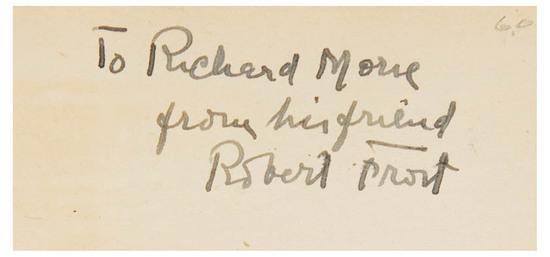 To Richard Morse
from his friend
Robert Frost